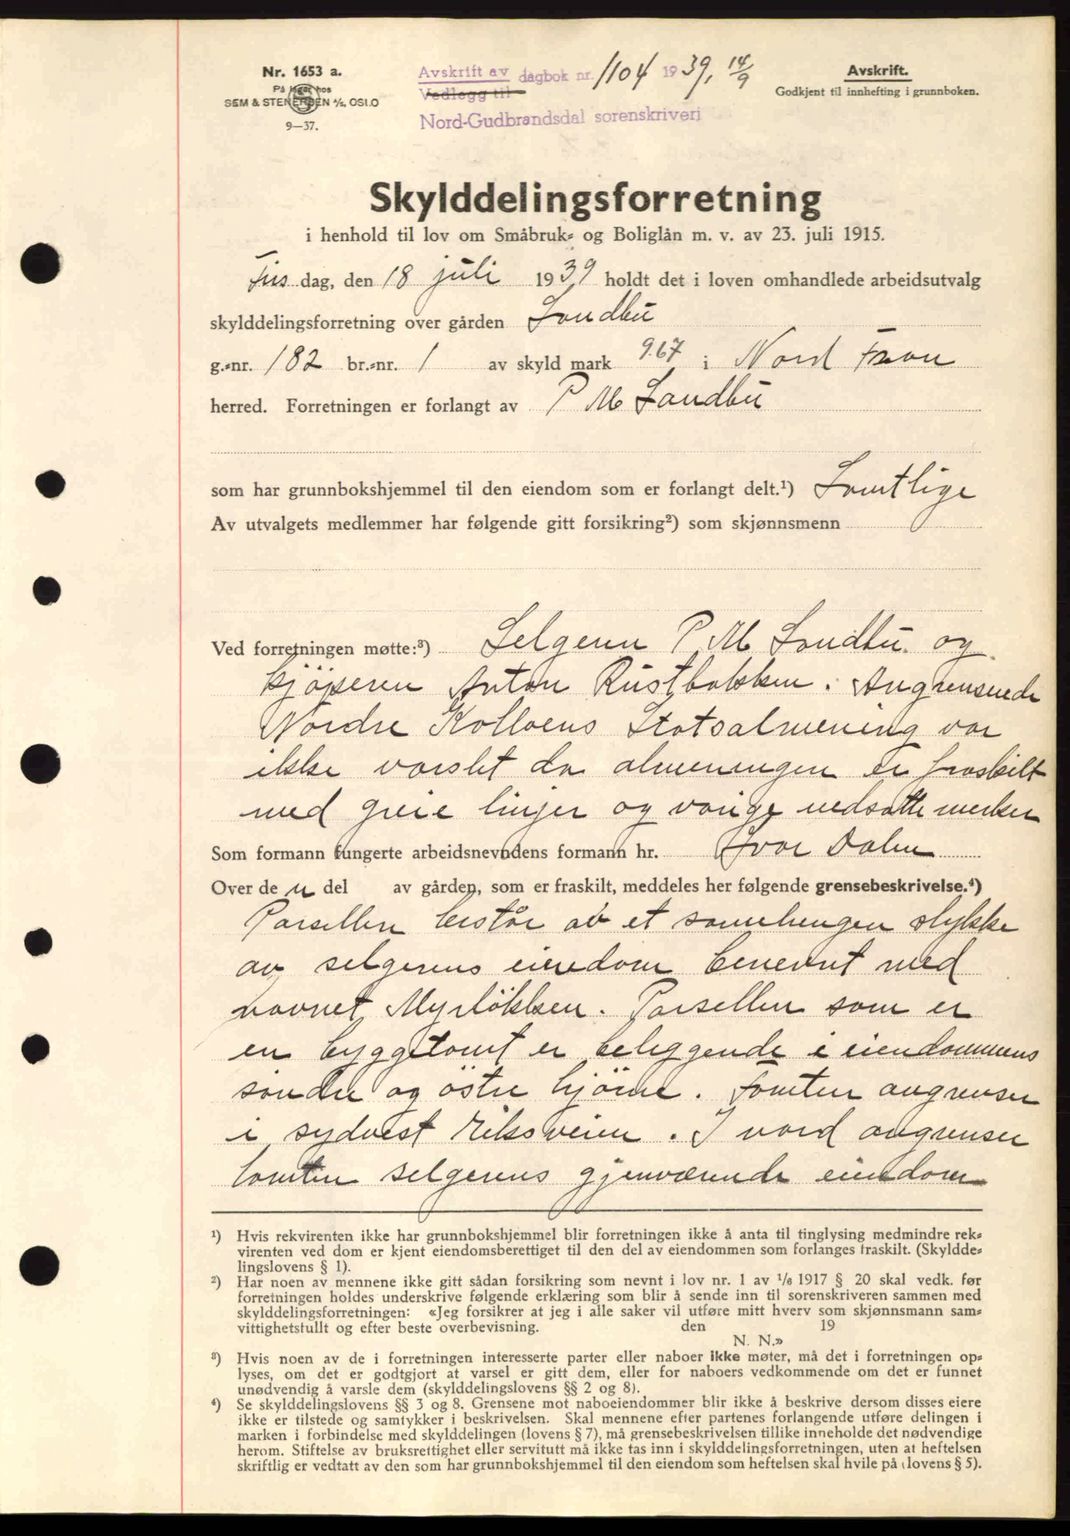 Nr. 1653 a.
På lager hos
SEM & STENERSEN A/S, OSLO
9—37.
Avskrift av dagbok nr. 1104 1939, 14/9
Vedlegg til
Nord-Gudbrandsdal sorenskriveri
Avskrift.
Godkjent til innhefting i grunnboken.
Skylddelingsforretning
i henhold til lov om Småbruk- og Boliglån m. v. av 23. juli 1915.
Tirsdag, den 18 juli 1939 holdt det i loven omhandlede arbeidsutvalg
skylddelingsforretning over gården Sandbu
g.-nr. 182 br.-nr. 1 av skyld mark 9.67 i Nord Fron
herred. Forretningen er forlangt av P M Sandbu
som har grunnbokshjemmel til den eiendom som er forlangt delt.¹) Samtlige
Av utvalgets medlemmer har følgende gitt forsikring²) som skjønnsmenn
Ved forretningen møtte:³) Selgeren P M Sandbu og
kjøperen Anton Rustbakken. Angrensende
Nordre Kolloens Statsalmening var
ikke varslet da almeningen er fraskilt
med greie linjer og varige nedsatte merker
Som formann fungerte arbeidsnevndens formann hr. Ivar Dalen
Over de n del av gården, som er fraskilt, meddeles her følgende grensebeskrivelse.⁴)
Parsellen består av et samehengen stykke
av selgerens eiendom benevnt med
navnet Myrløkken. Parsellen som er
en byggetomt er beliggende i eiendommens
søndre og östre hjörne. Tomten angrenser
i sydvest Riksveien. I nord angrenser
tomten selgerens gjenværende eiendom
¹) Hvis rekvirenten ikke har grunnbokshjemmel blir forretningen ikke å anta til tinglysing medmindre rek-
virenten ved dom er kjent eiendomsberettiget til den del av eiendommen som forlanges fraskilt. (Skyldde-
lingslovens § 1).
²) Har noen av mennene ikke gitt sådan forsikring som nevnt i lov nr. 1 av 1/6 1917 § 20 skal vedk. før
forretningen holdes underskrive følgende erklæring som blir å sende inn til sorenskriveren sammen med
skylddelingsforretningen: «Jeg forsikrer at jeg i alle saker vil utføre mitt hverv som skjønnsmann sam-
vittighetsfullt og efter beste overbevisning. den 19
N. N.»
³) Hvis noen av de i forretningen interesserte parter eller naboer ikke møter, må det i forretningen op-
lyses, om det er godtgjort at varsel er gitt dem, eller for naboers vedkommende om det er funnet
unødvendig å varsle dem (skylddelingslovens §§ 2 og 8).
⁴) Se skylddelingslovens §§ 3 og 8. Grensene mot naboeiendommer blir ikke å beskrive dersom disses eiere
ikke er tilstede og samtykker i beskrivelsen. Skal mennene efter partenes forlangende utføre delingen i
marken i forbindelse med skylddelingen (lovens § 7), må grensebeskrivelsen tillike inneholde det nødvendige
herom. Stiftelse av bruksrettighet eller servitutt må ikke tas inn i skylddelingsforretningen, uten at heftelsen
skriftlig er vedtatt av den som har grunnbokshjemmel til den eiendom som heftelsen skal hvile på (lovens § 5).